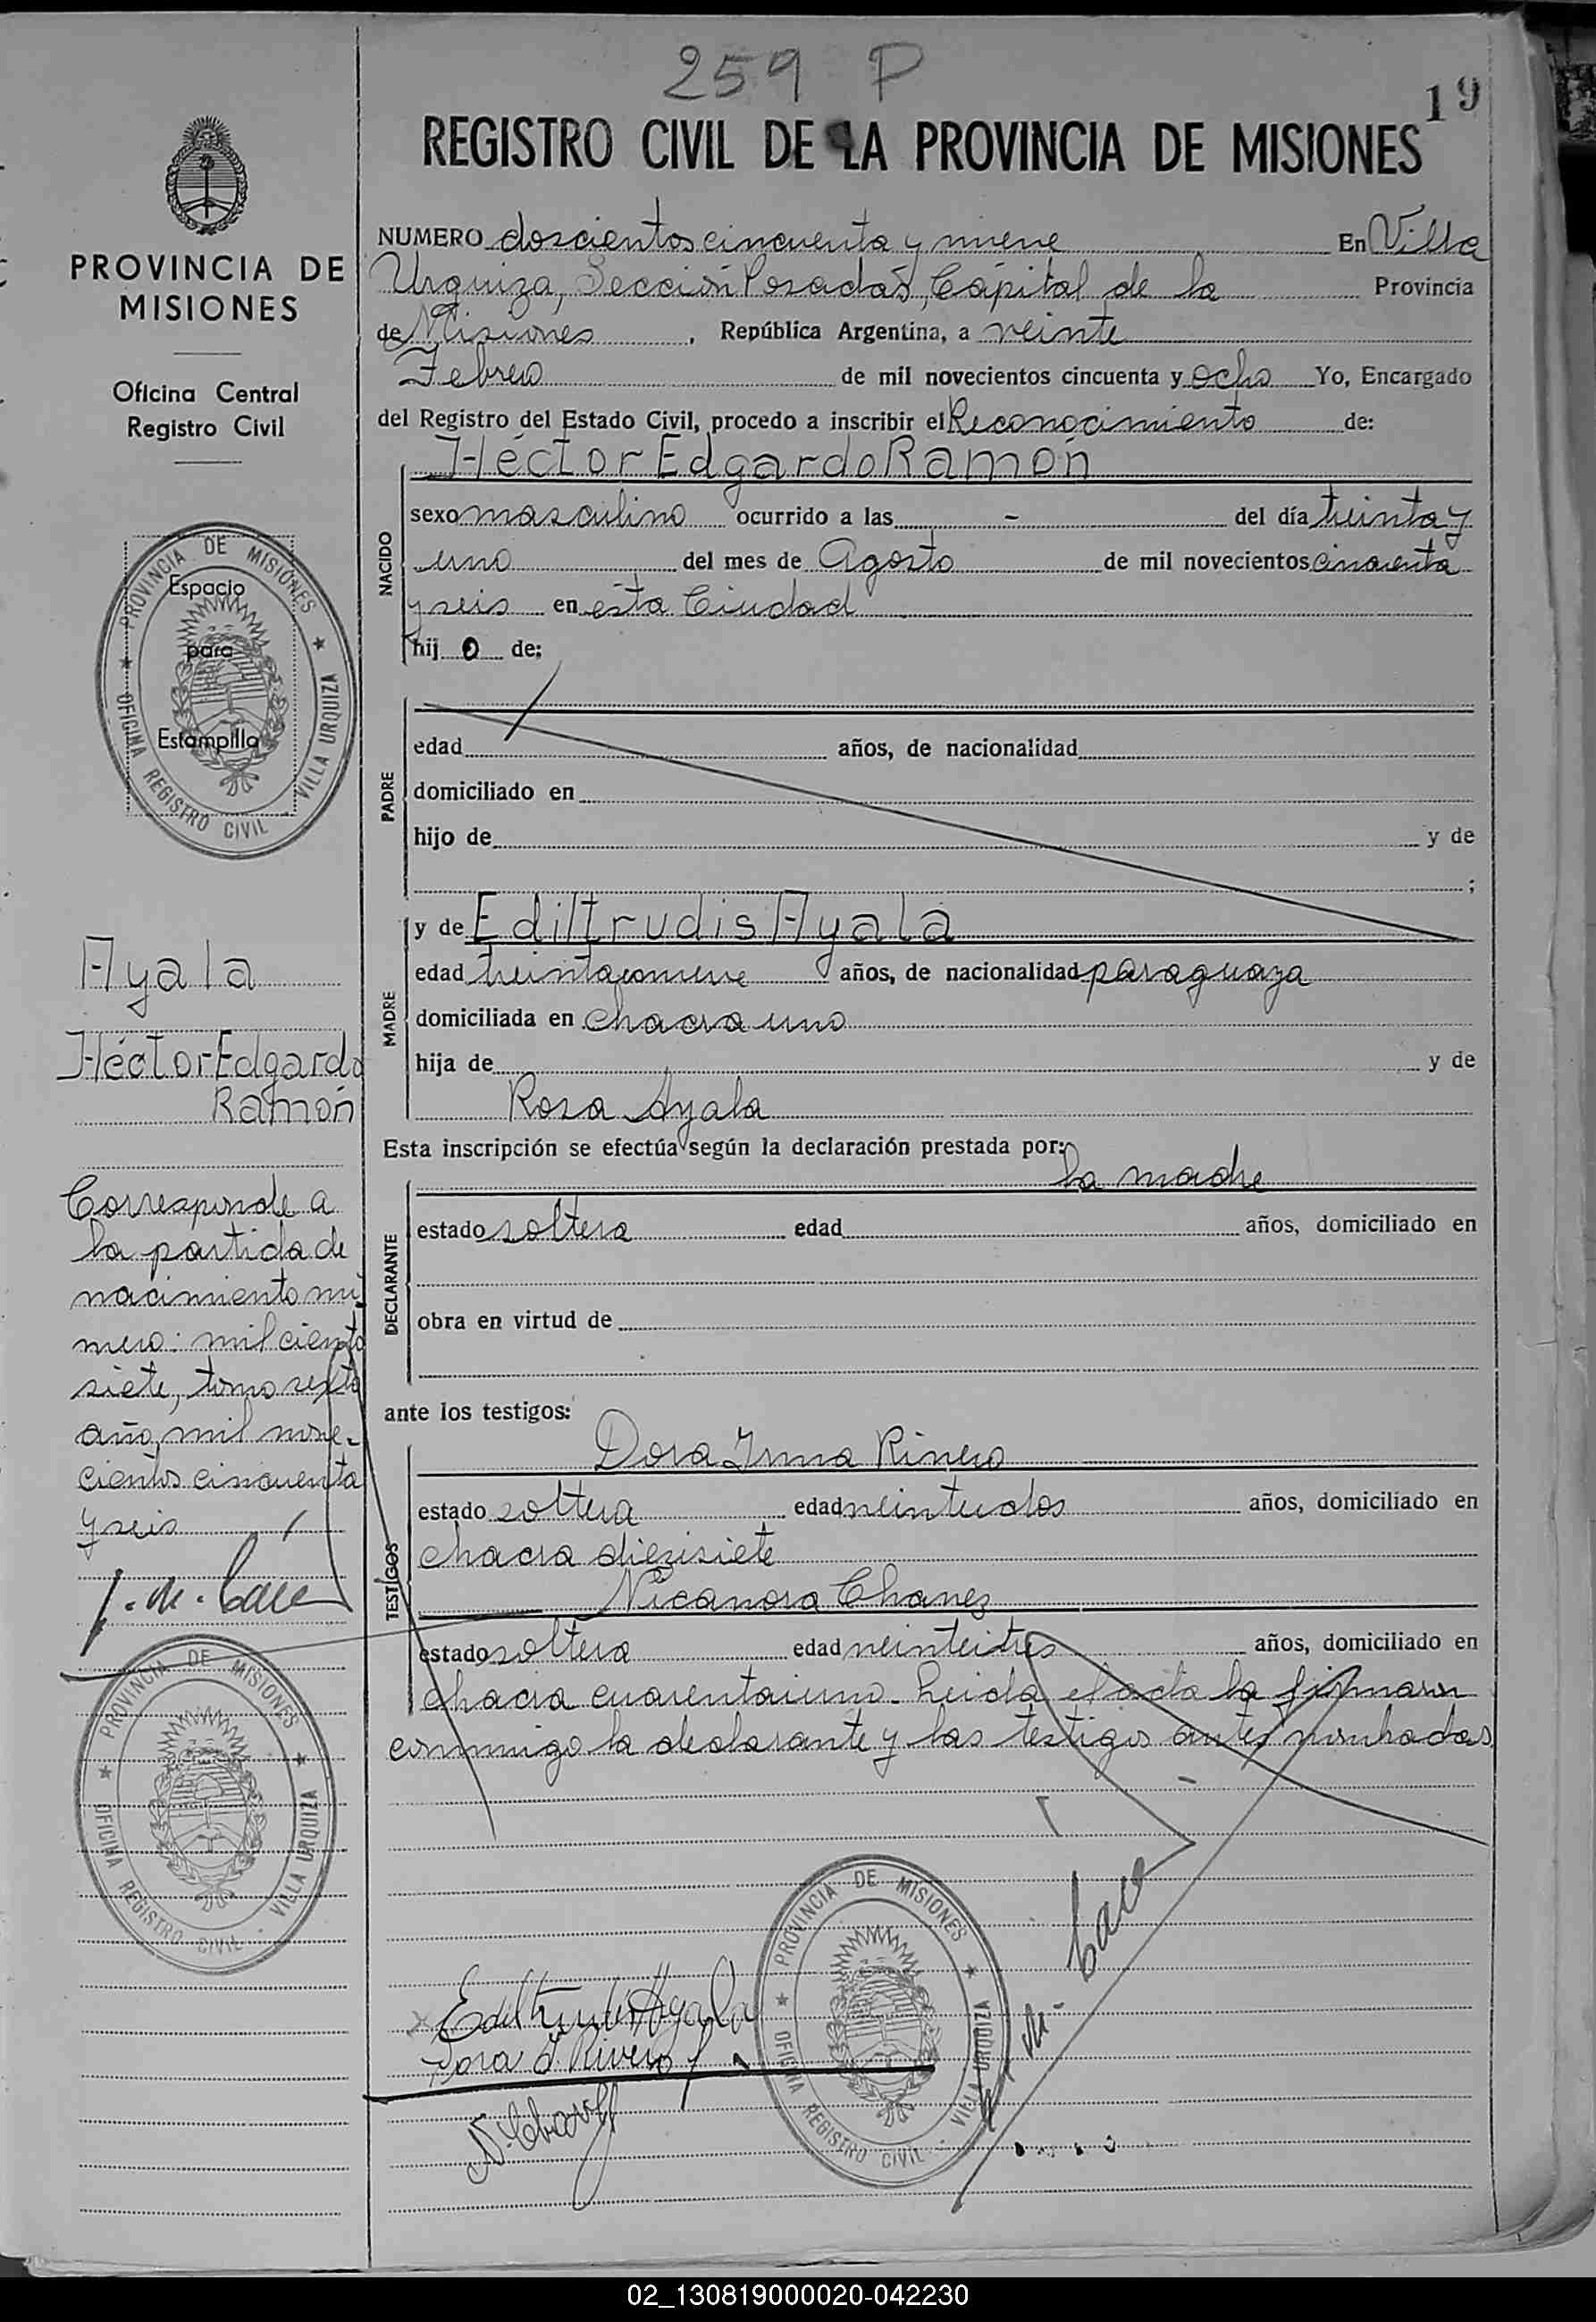 259 P
19
REGISTRO CIVIL DE LA PROVINCIA DE MISIONES
PROVINCIA DE
MISIONES
Oficina Central
Registro Civil
PROVINCIA DE MISIONES
Espacio
para
Estampilla
OFICINA REGISTRO CIVIL - VILLA URQUIZA
Ayala
Héctor Edgardo
Ramón
Corresponde a
la partida de
nacimiento nú
mero: mil ciento
siete, tomo sexto
año mil nove-
cientos cincuenta
y seis
PROVINCIA DE MISIONES
OFICINA REGISTRO CIVIL - VILLA URQUIZA
NUMERO doscientos cincuenta y nueve En Villa
Urquiza, Sección Posadas, Capital de la Provincia
de Misiones, República Argentina, a veinte
Febrero de mil novecientos cincuenta y ocho Yo, Encargado
del Registro del Estado Civil, procedo a inscribir el Reconocimiento de:
Héctor Edgardo Ramón
NACIDO
sexo masculino ocurrido a las - del día treinta y
uno del mes de Agosto de mil novecientos cincuenta
y seis en esta Ciudad
hij o de:
PADRE
edad años, de nacionalidad
domiciliado en
hijo de y de
;
MADRE
y de Ediltrudis Ayala
edad treintainueve años, de nacionalidad paraguaya
domiciliada en chacra uno
hija de y de
Rosa Ayala
Esta inscripción se efectúa según la declaración prestada por:
la madre
DECLARANTE
estado soltera edad años, domiciliado en
obra en virtud de
ante los testigos:
Dora Irma Rivero
TESTIGOS
estado soltera edad veintidos años, domiciliado en
chacra diezisiete
Nicanora Chavez
estado soltera edad veinteitres años, domiciliado en
chacra cuarentaiuno. Leída el acta la firmaron
conmigo la declarante y las testigos antes nombradas
-
PROVINCIA DE MISIONES
OFICINA REGISTRO CIVIL - VILLA URQUIZA
Ediltrudis Ayala
Dora I. Rivero
02_130819000020-042230